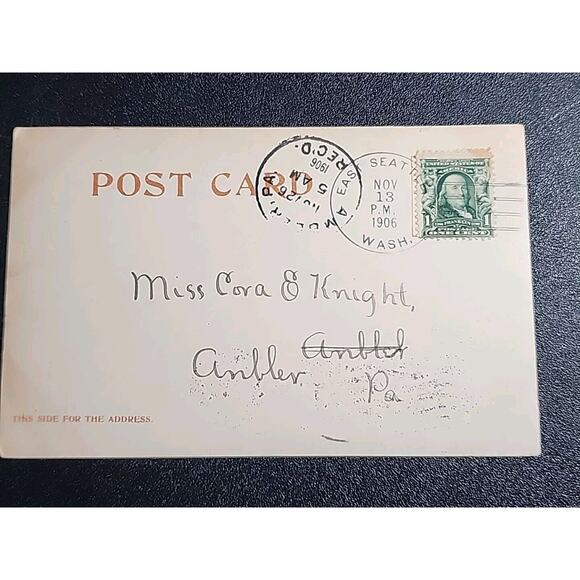 POST CARD.
AMBLER, PA
NOV 26
5 AM
1906
REC'D.
EAST SEATTLE
NOV
13
P.M.
1906
WASH.
1
FRANKLIN
ONE CENT
Miss Cora E Knight,
Ambler
Ambler, Pa
THIS SIDE FOR THE ADDRESS.